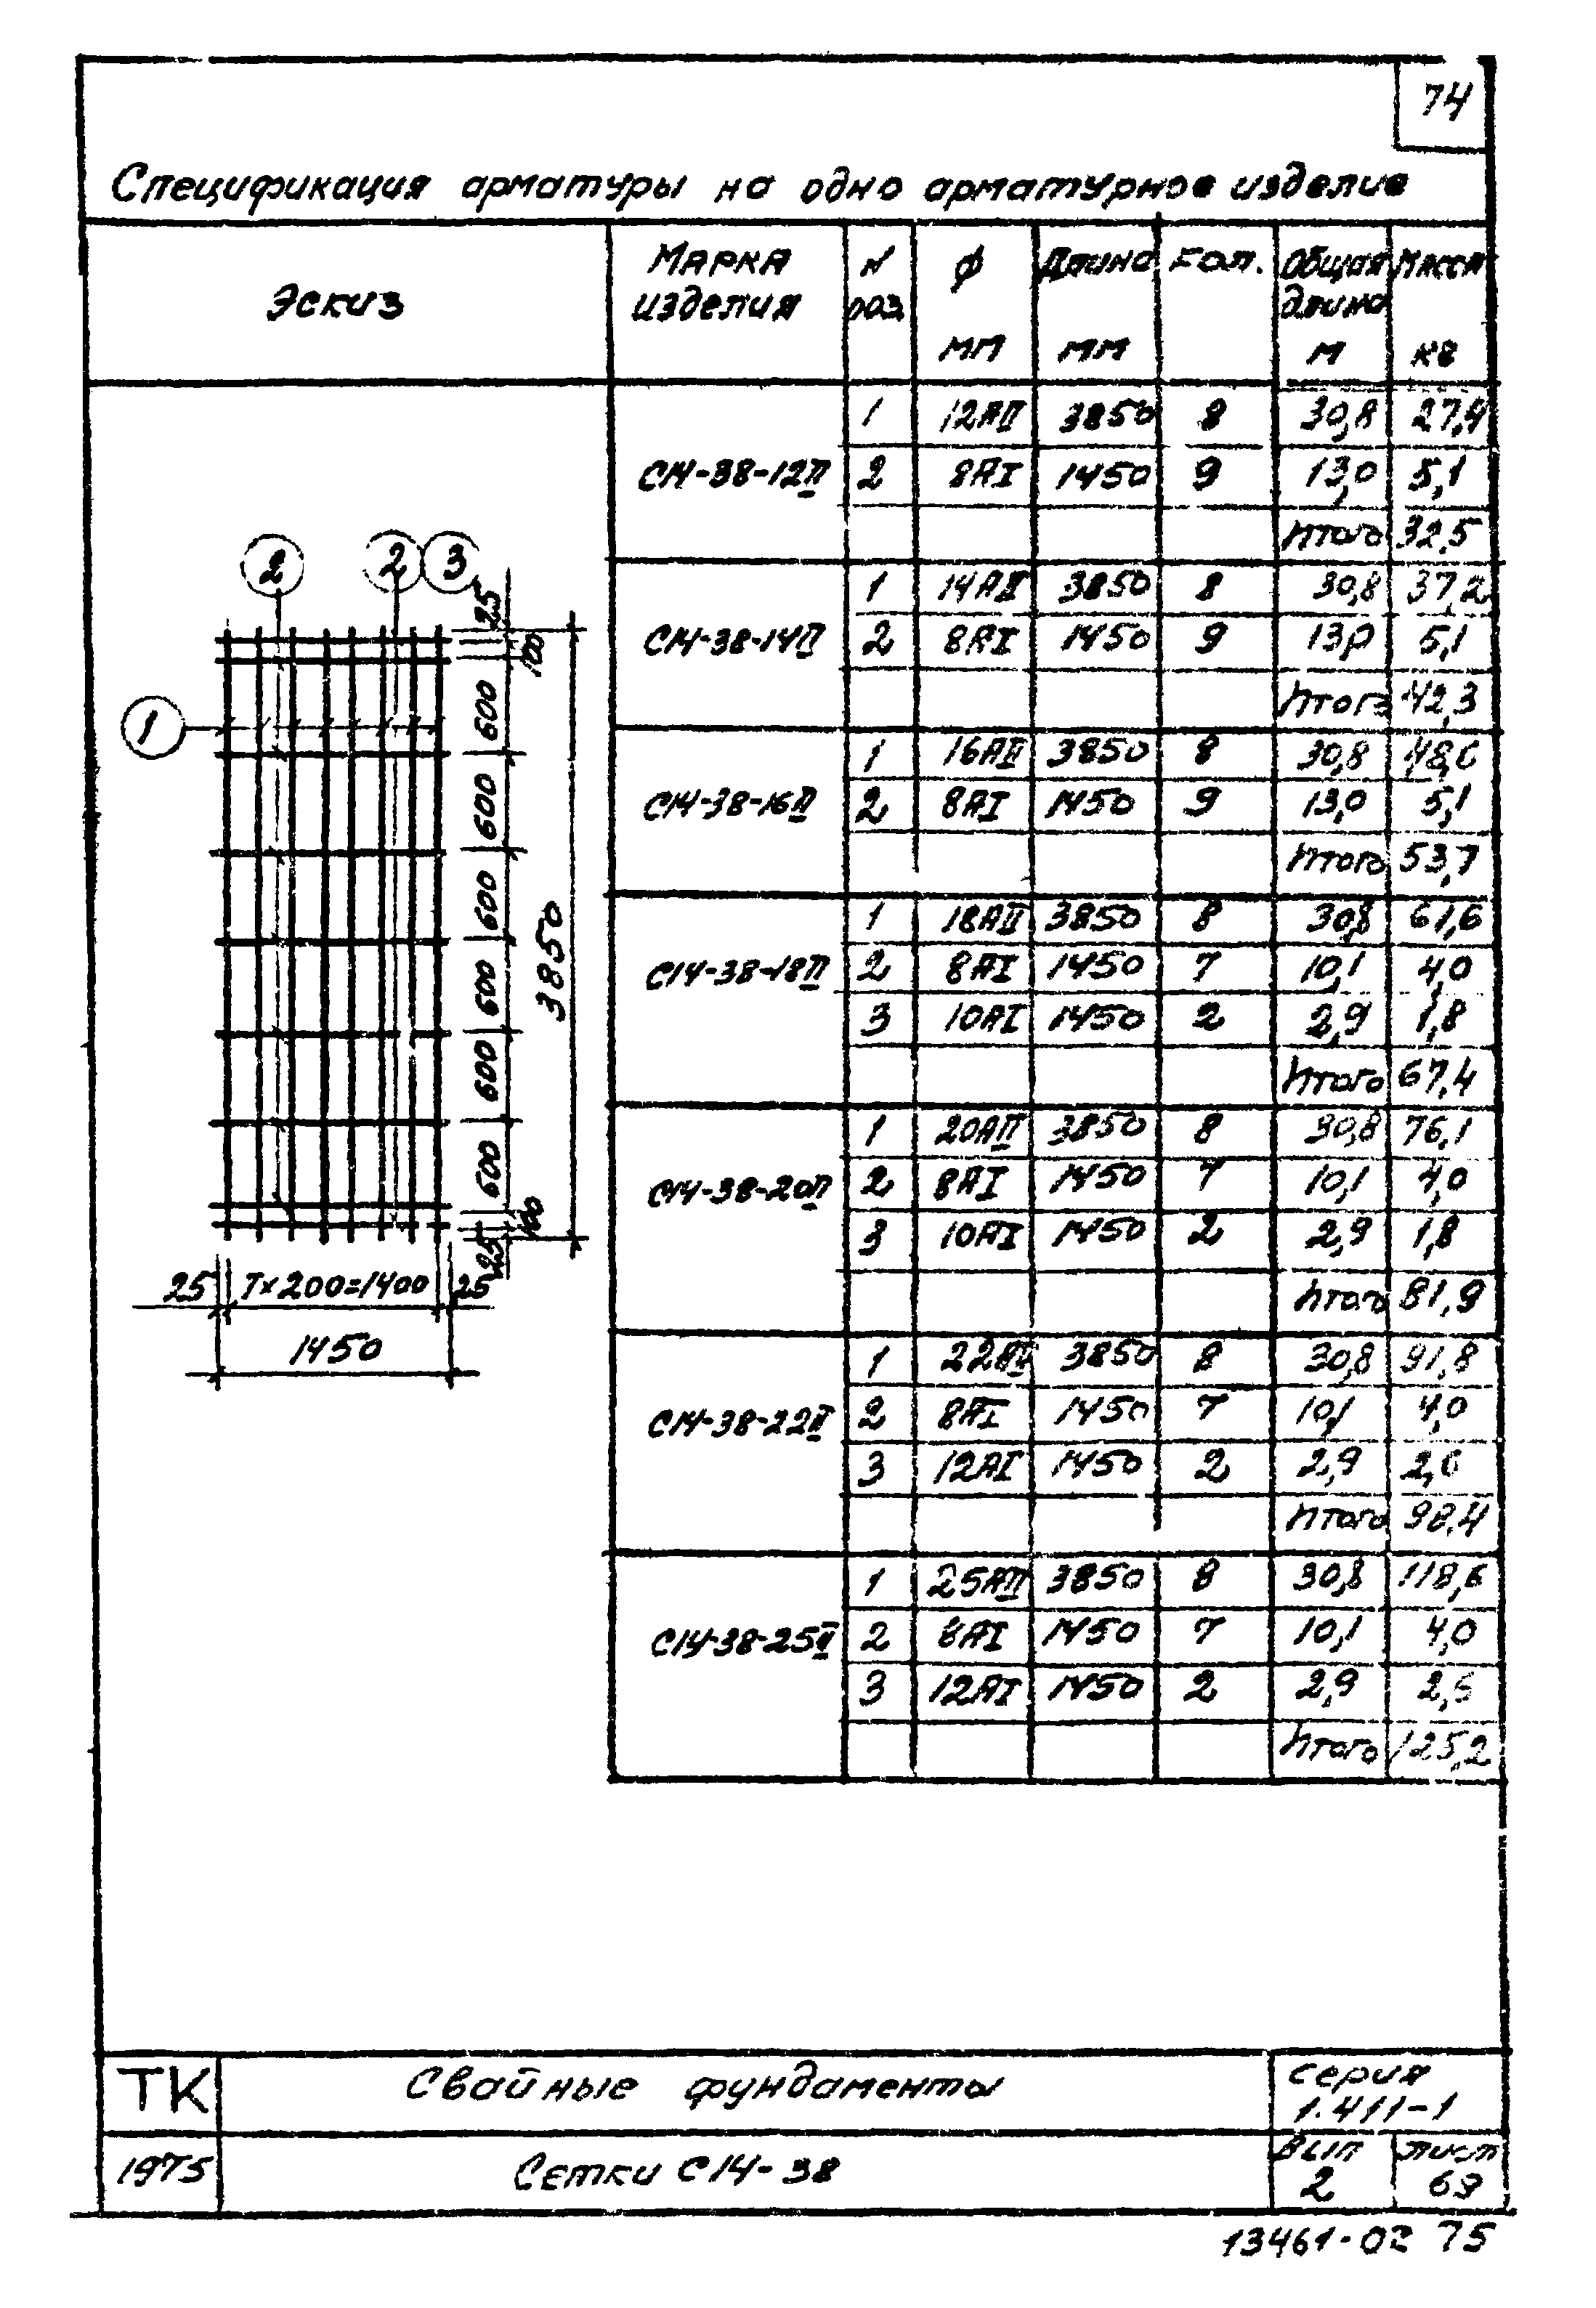 74
Спецификация арматуры на одно арматурное изделие
Эскиз
Марка изделия
N поз.
ф мм
Длина мм
Кол.
Общая длина м
Масса кг
С14-38-12II
1 12АII 3850 8 30,8 27,4
2 8АI 1450 9 13,0 5,1
Итого 32,5
С14-38-14II
1 14АII 3850 8 30,8 37,2
2 8АI 1450 9 13,0 5,1
Итого 42,3
С14-38-16II
1 16АII 3850 8 30,8 48,6
2 8АI 1450 9 13,0 5,1
Итого 53,7
С14-38-18II
1 18АII 3850 8 30,8 61,6
2 8АI 1450 7 10,1 4,0
3 10АI 1450 2 2,9 1,8
Итого 67,4
С14-38-20II
1 20АII 3850 8 30,8 76,1
2 8АI 1450 7 10,1 4,0
3 10АI 1450 2 2,9 1,8
Итого 81,9
С14-38-22II
1 22АII 3850 8 30,8 91,8
2 8АI 1450 7 10,1 4,0
3 12АI 1450 2 2,9 2,6
Итого 98,4
С14-38-25II
1 25АII 3850 8 30,8 118,6
2 8АI 1450 7 10,1 4,0
3 12АI 1450 2 2,9 2,6
Итого 125,2
2 2 3
1
25
100
600
600
600
600
600
600
100
25
3850
25 7×200=1400 25
1450
ТК
Свайные фундаменты
серия
1.411-1
1975
Сетки С14-38
Вып
2
лист
69
13461-02 75